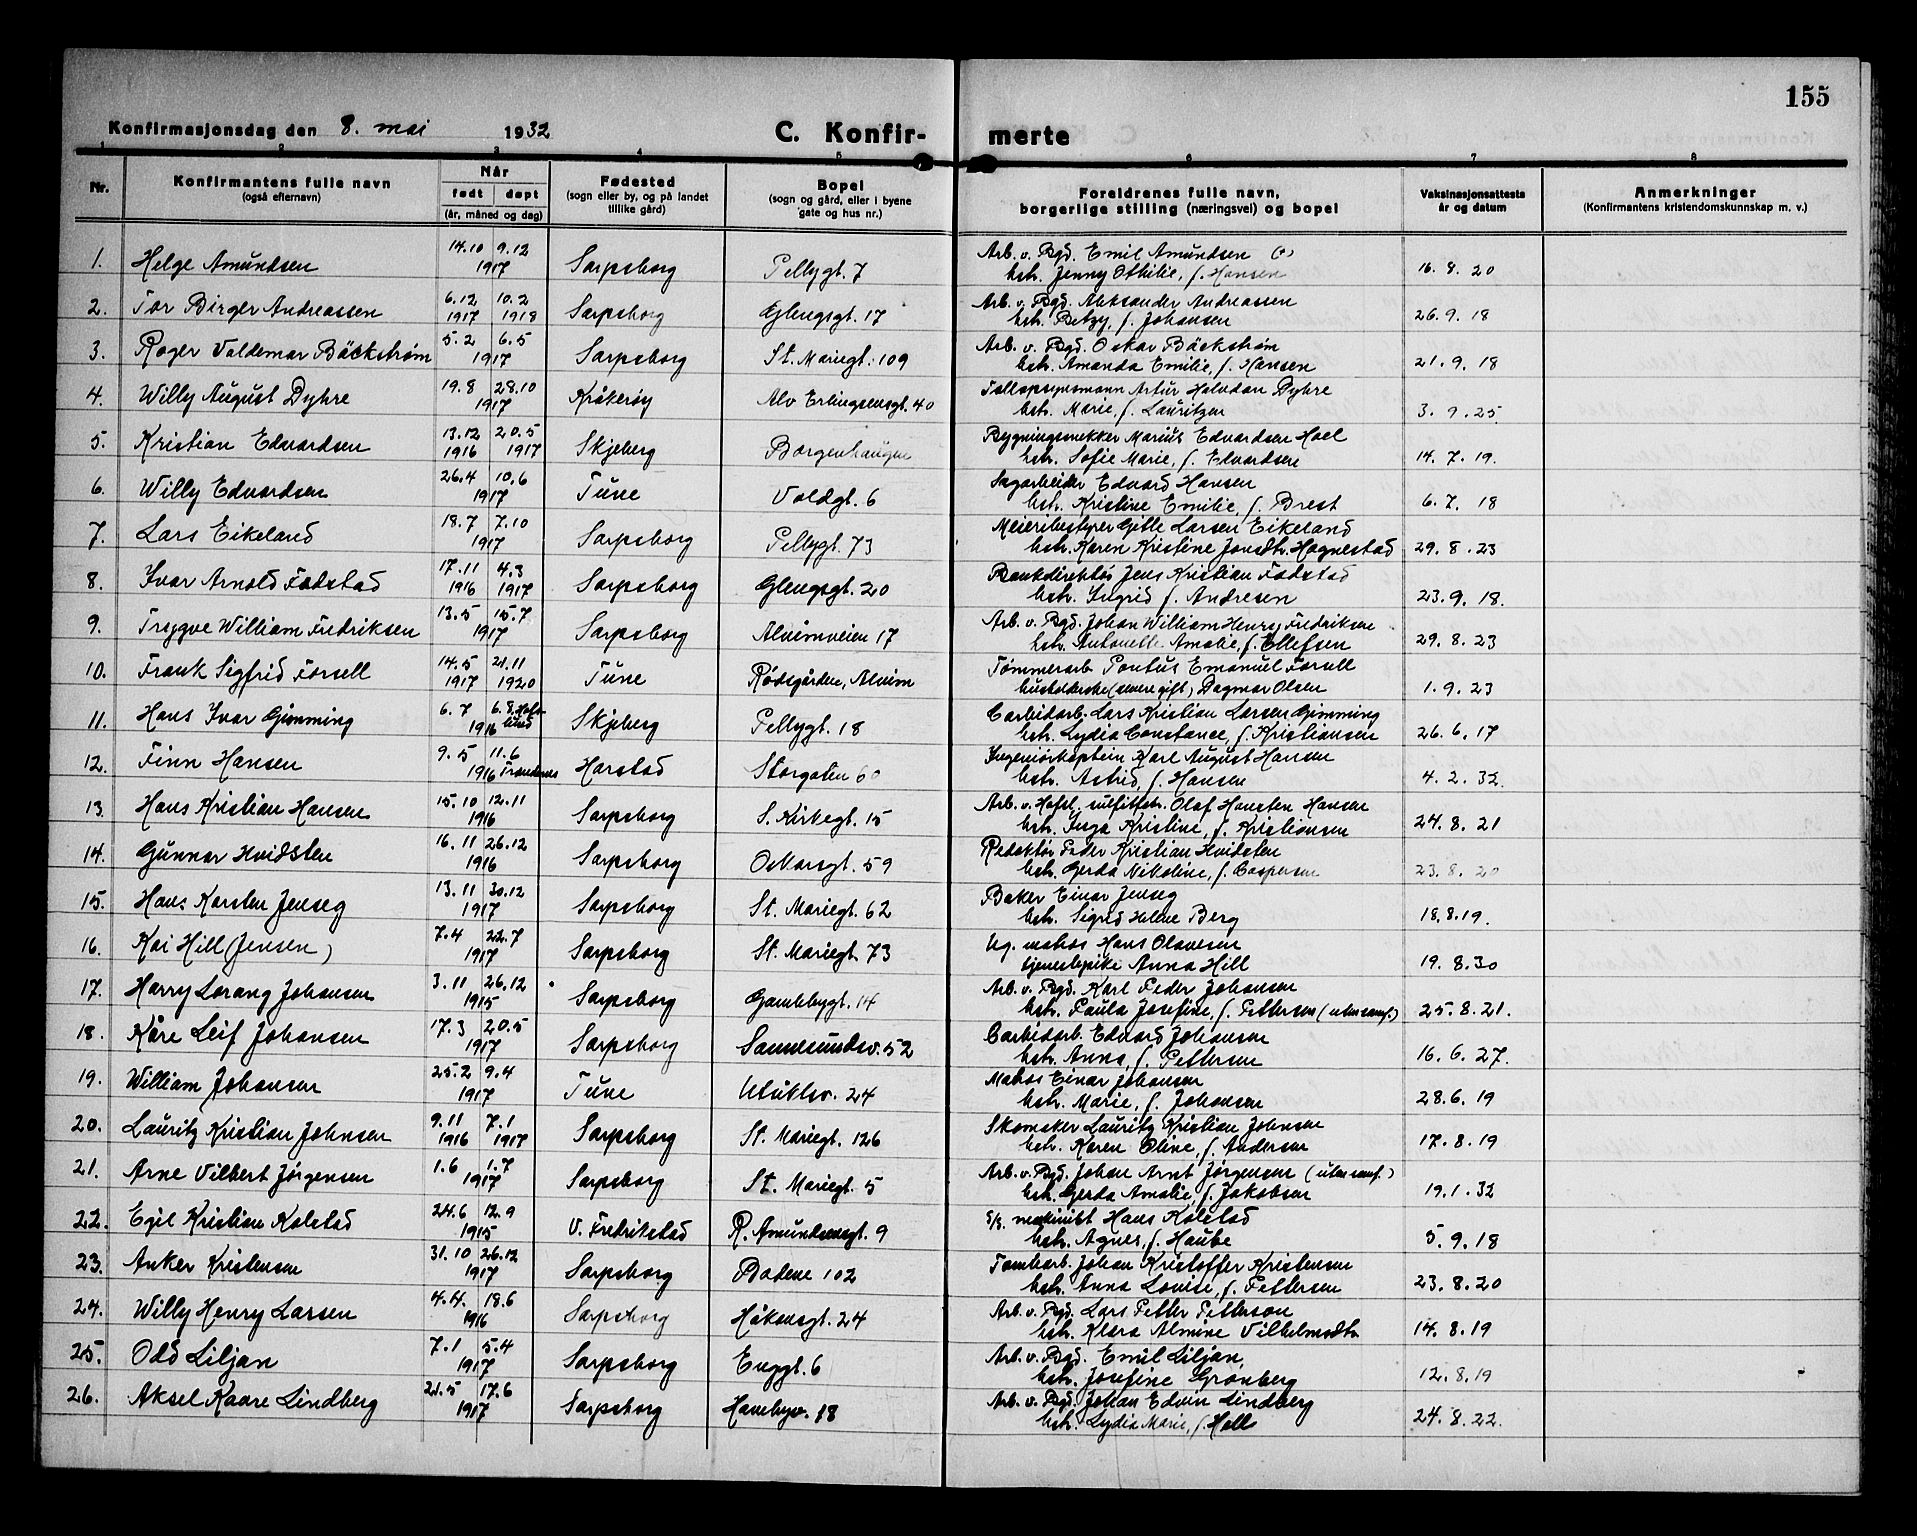 155
Konfirmasjonsdag den 8. mai 1932 C. Konfir- merte
1 2 3 4 5 6 7 8
Nr. Konfirmantens fulle navn (også efternavn) Når født døpt (år, måned og dag) Fødested (sogn eller by, og på landet tillike gård) Bopel (sogn og gård, eller i byene gate og hus nr.) Foreldrenes fulle navn, borgerlige stilling (næringsvei) og bopel Vaksinasjonsattests år og datum Anmerkninger (Konfirmantens kristendomskunnskap m. v.)
1. Helge Amundsen 14.10 9.12 1917 Sarpsborg Pellygt. 7 Arb. v. Bgd. Emil Amundsen 16.8.20
hstr. Jenny Othilie, f. Hansen
2. Tor Birger Andreassen 6.12 1917 10.2 1918 Sarpsborg Glengsgt. 17 Arb. v. Bgd. Aleksander Andreassen 26.9.18
hstr. Betzy, f. Johansen
3. Roger Valdemar Bäckstrøm 5.2 6.5 1917 Sarpsborg St. Mariegt. 109 Arb. v. Bgd. Oskar Bäckstrøm 21.9.18
hstr. Amanda Emilie, f. Hansen
4. Willy August Dyhre 19.8 28.10 1917 Kråkerøy Alv Erlingsensgt. 40 Tollopsynsmann Artur Halvdan Dyhre 3.9.25
hstr. Marie, f. Lauritzen
5. Kristian Edvardsen 13.12 1916 20.5 1917 Skjeberg Borgenhaugen Bygningssnekker Marius Edvardsen Hoel 14.7.19.
hstr. Sofie Marie, f. Edvardsen
6. Willy Edvardsen 26.4 10.6 1917 Tune Voldgt. 6 Sagarbeider Edvard Hansen 6.7.18
hstr. Kristine Emilie, f. Brest
7. Lars Eikeland 18.7 7.10 1917 Sarpsborg Pellygt. 73 Meieribestyrer Gitle Larsen Eikeland 29.8.23
hstr. Karen Kristine Jonsdtr. Hognestad
8. Ivar Arnold Fodstad 17.11 1916 4.3 1917 Sarpsborg Glengsgt. 20 Bankdirektør Jens Kristian Fodstad 23.9.18.
hstr. Ingrid f. Andresen
9. Trygve William Fredriksen 13.5 15.7 1917 Sarpsborg Alvimveien 17 Arb. v. Bgd. Johan William Henry Fredriksen 29.8.23
hstr. Antonette Amalie, f. Ellefsen
10. Frank Sigfrid Forsell 14.5 1917 21.11 1920 Tune Rødsgården, Alvim Tømmerarb. Pontus Emanuel Forsell 1.9.23
husholderske (senere gift) Dagmar Olsen
11. Hans Ivar Gimming 6.7 6.8. Hafslund 1916 Skjeberg Pellygt. 18 Carbidarb. Lars Kristian Larsen Gimming 26.6.17
hstr. Lydia Constance, f. Kristiansen
12. Finn Hansen 9.5 11.6 1916 Trondenes Harstad Storgaten 60 Ingeniørkaptein Karl August Hansen 4.2.32.
hstr. Astrid, f. Hansen
13. Hans Kristian Hansen 15.10 12.11 1916 Sarpsborg S. Kirkegt. 15 Arb. v. Hafsl. sulfitfabr. Olaf Hansten Hansen 24.8.21
hstr. Inga Kristine, f. Kristiansen
14. Gunnar Hvidsten 16.11 26.12 1916 Sarpsborg Oskarsgt. 59 Redaktør Peder Kristian Hvidsten 23.8.20
hstr. Gerda Nikoline, f. Caspersen
15. Hans Karsten Jenseg 13.11 30.12 1917 Sarpsborg St. Mariegt. 62 Baker Einar Jenseg 18.8.19.
hstr. Sigrid Helene Berg
16. Kai Hill (Jensen) 7.4 22.7 1917 Sarpsborg St. Mariegt. 73 Ug. matros Hans Olavesen 19.8.30
tjenestepike Anna Hill
17. Harry Lorang Johansen 3.11 26.12 1915 Sarpsborg Gamlebygt. 14 Arb. v. Bgd. Karl Peder Johansen 25.8.21.
hstr. Paula Josefine, f. Pettersen (utm samf.)
18. Kåre Leif Johansen 17.3 20.5 1917 Sarpsborg Sannesundsv. 52 Carbidarb. Edvard Johansen 16.6.27.
hstr. Anna, f. Pettersen
19. William Johansen 25.2 9.4 1917 Tune Utsiktsv. 24 Matros Einar Johansen 28.6.19
hstr. Marie, f. Johansen
20. Lauritz Kristian Johnsen 9.11 1916 7.1 1917 Sarpsborg St. Mariegt. 126 Skomaker Lauritz Kristian Johnsen 17.8.19
hstr. Karen Oline, f. Andersen
21. Arne Vilbert Jørgensen 1.6 1.7 1917 Sarpsborg St. Mariegt. 5 Arb. v. Bgd. Johan Arnt Jørgensen (utm samf.) 19.1.32
hstr. Gerda Amalie, f. Jakobsen
22. Egil Kristian Kolstad 24.6 12.9 1915 V. Fredrikstad R. Amundsensgt. 9 maskinist Hans Kolstad 5.9.18
hstr. Agnes, f. Haube
23. Anker Kristensen 31.10 26.12 1917 Sarpsborg Bodene 102 Tomtearb. Johan Kristoffer Kristensen 23.8.20
hstr. Anna Lovise, f. Pettersen
24. Willy Henry Larsen 4.4. 18.6 1916 Sarpsborg Håkonsgt. 24 Arb. v. Bgd. Lars Petter Petterson 14.8.19
hstr. Klara Almine Vilhelmsdtr.
25. Odd Liljan 7.1 5.4 1917 Sarpsborg Enggt. 6 Arb. v. Bgd. Emil Liljan, 12.8.19
hstr. Josefine Grønberg
26. Aksel Kaare Lindberg 21.5 17.6 1917 Sarpsborg Hannebyv. 18 Arb. v. Bgd. Johan Edvin Lindberg 24.8.22.
hstr. Lydia Marie, f. Hell